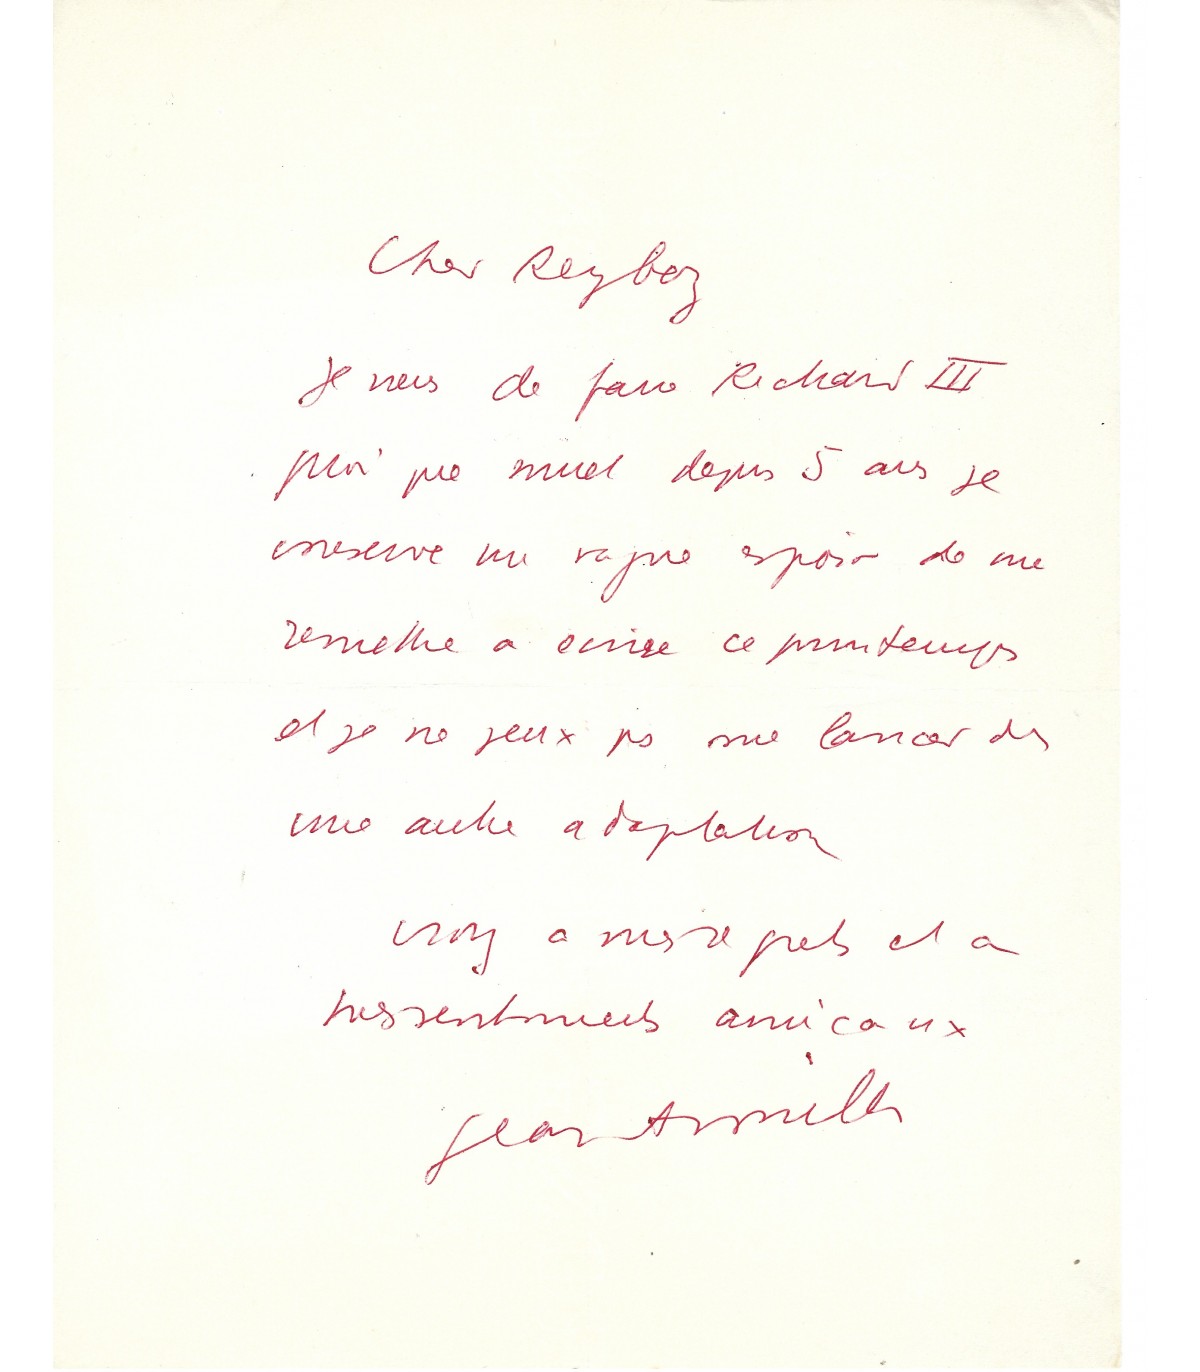 Cher Reybaz
Je viens de faire Richard III
quoique muet depuis 5 ans je
conserve un vague espoir de me
remettre a écrire ce printemps
et je ne veux pas me lancer ds
une autre adaptation
croyez a mes regrets et a
mes sentiments amicaux
Jean Anouilh